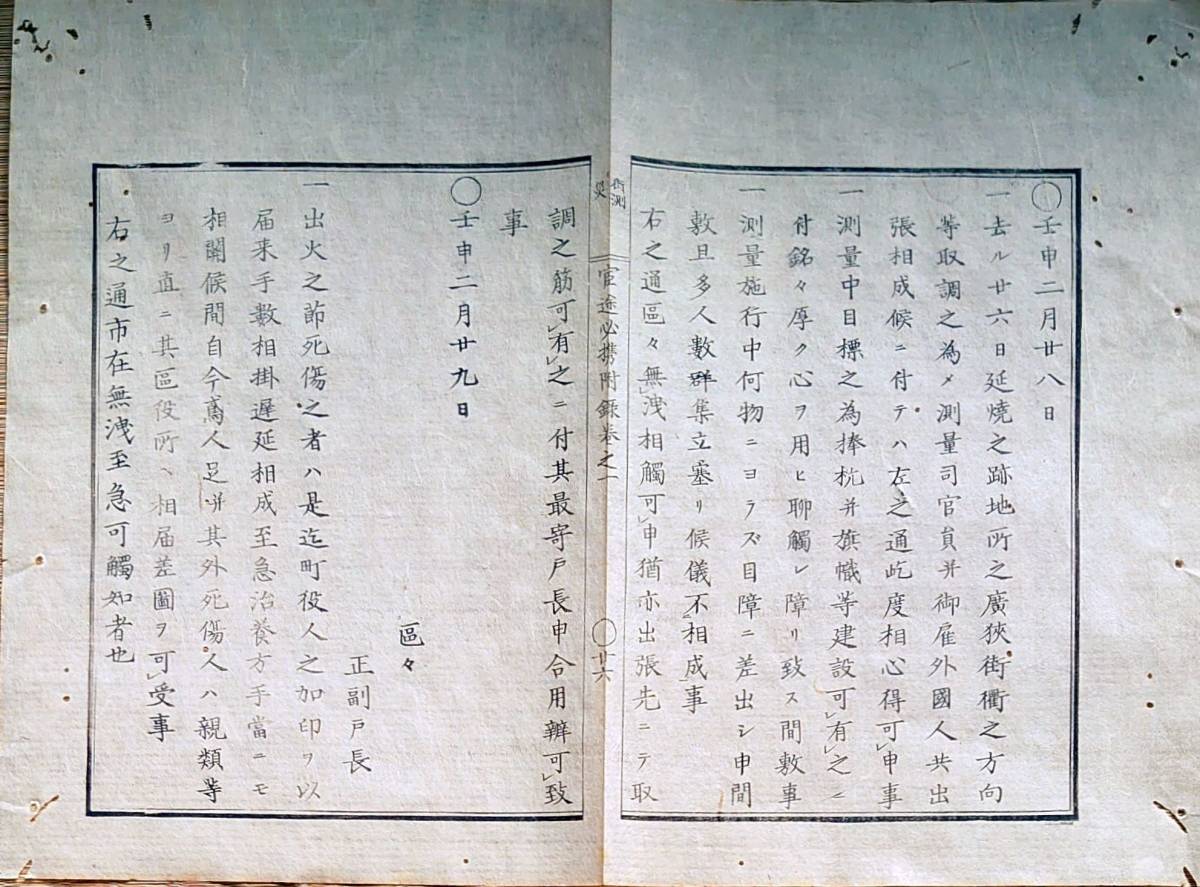 ○壬申二月廿八日
一去ル廿六日延燒之跡地所之廣狹街衢之方向
等取調之為メ測量司官員并御雇外國人共出
張相成候ニ付テハ左之通屹度相心得可申事
一測量中目標之為捧杭并旗幟等建設可有之ニ
付銘々厚ク心ヲ用ヒ聊觸レ障リ致ス間敷事
一測量施行中何物ニヨラズ目障ニ差出シ申間
敷且多人數群集立塞リ候儀不相成事
右之通區々無洩相觸可申猶亦出張先ニテ取
官途必携附錄卷之一
○廿六
調之筋可有之ニ付其最寄戸長申合用辨可致
事
○壬申二月廿九日
區々
正副戸長
一出火之節死傷之者ハ是迄町役人之加印ヲ以
届来手數相掛遲延相成至急治養方手當ニモ
相關候間自今鳶人足并其外死傷人ハ親類等
ヨリ直ニ其區役所ヘ相届差圖ヲ可受事
右之通市在無洩至急可觸知者也